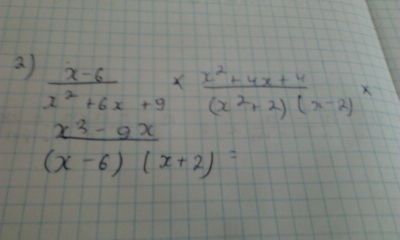 2) x-6 / x² + 6x + 9 × x² + 4x + 4 / (x² + 2) (x - 2) ×
x³ - 9x / (x - 6) (x + 2) =